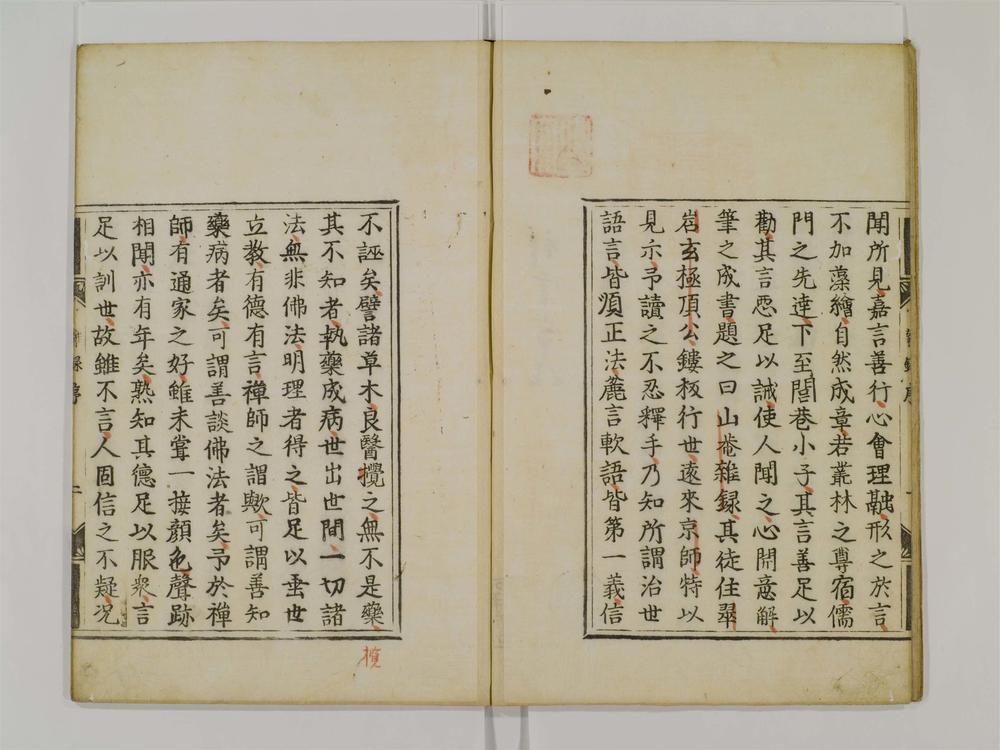 聞所見嘉言善行心會理融形之於言
不加藻繪自然成章若叢林之尊宿儒
門之先達下至閭巷小子其言善足以
勸其言惡足以誡使人聞之心開意解
筆之成書題之曰山菴雜録其徒住翠
岩玄極頂公鏤板行世遠來京師特以
見示予讀之不忍釋手乃知所謂治世
語言皆順正法麁言軟語皆第一義信
不誣矣譬諸草木良醫攬之無不是藥
其不知者執藥成病世出世間一切諸
法無非佛法明理者得之皆足以垂世
立教有德有言禪師之謂歟可謂善知
藥病者矣可謂善談佛法者矣予於禪
師有通家之好雖未甞一接顏色聲跡
相聞亦有年矣熟知其德足以服衆言
足以訓世故雖不言人固信之不疑况
序
二